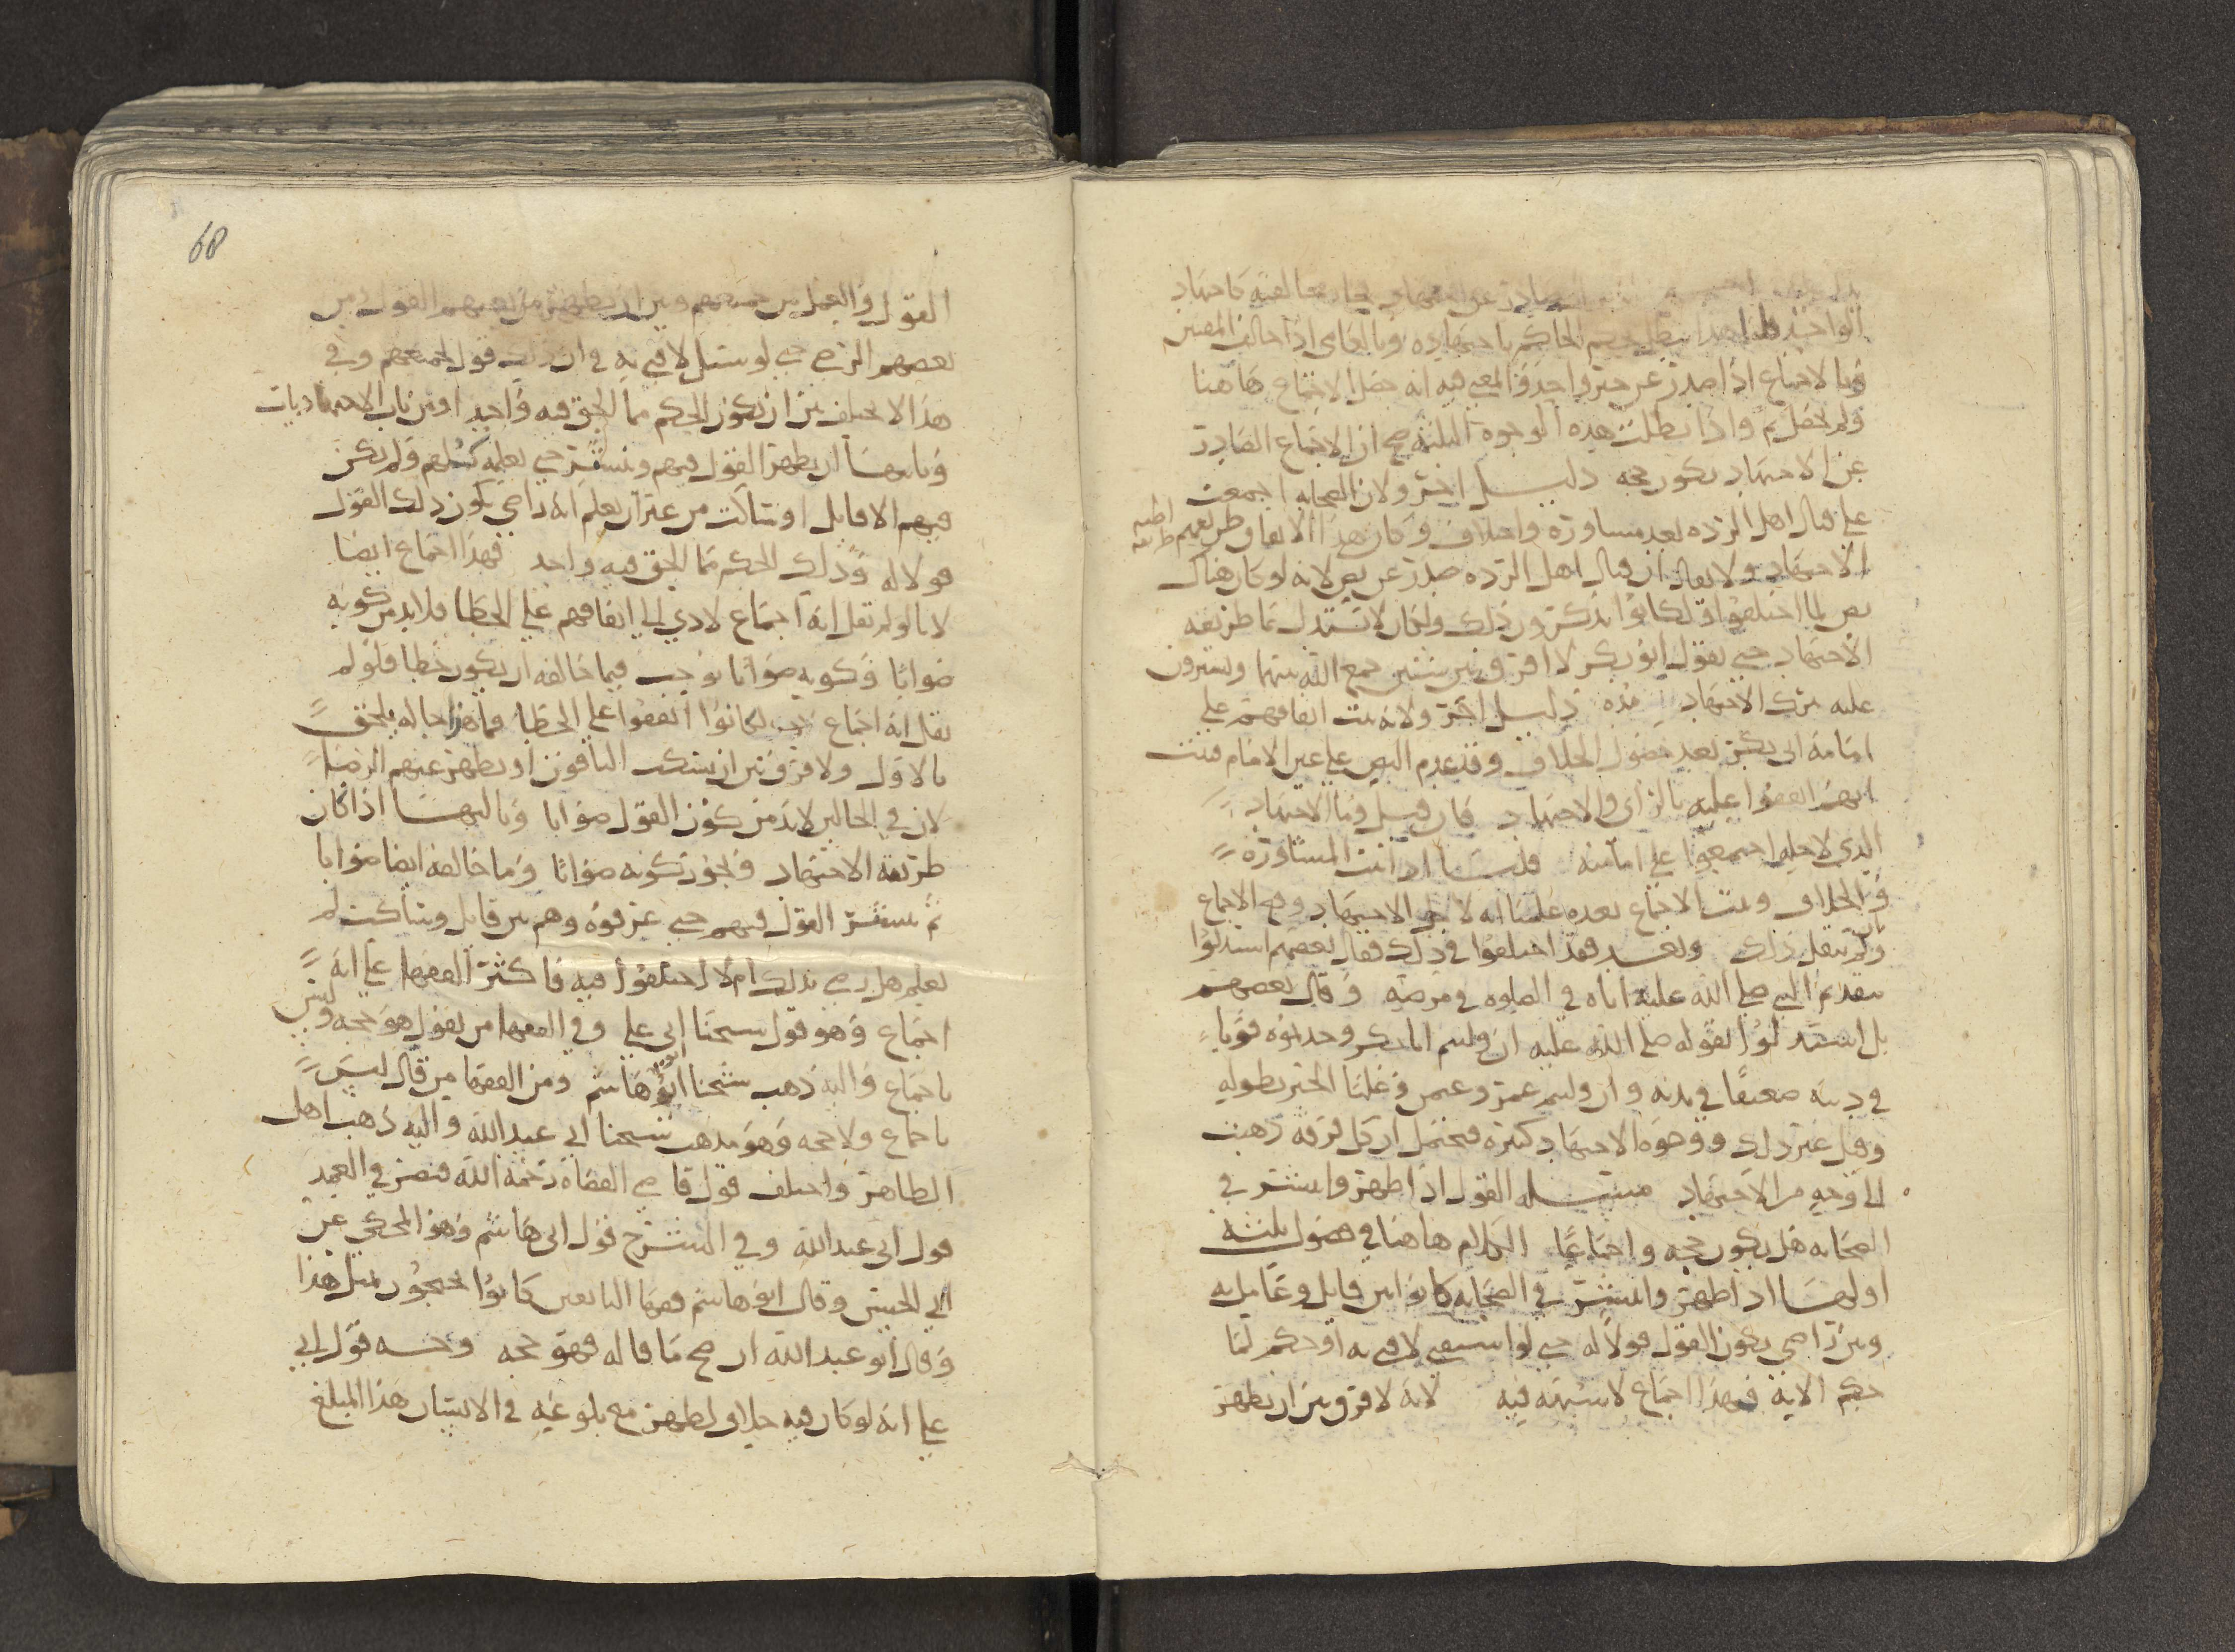 الواحد فلهذا يبطل بحكم الحاكم باجتهاده وبالعامي اذا خالف المفتين
وبالاجماع اذا صدر عن خبر واحد والمعنى فيه انه حصل الاجماع هاهنا
ولم يحصل ثم واذا بطلت هذه الوجوه الثلثة صح ان الاجماع الصادر
عن الاجتهاد يكون حجه دليل اخر ولان الصحابه اجمعت
على قتال اهل الرده بعد مشاورة واختلاف وكان هذا الاتفاق طريقهم
الاجتهاد ولا يقال ان قتال اهل الرده صدر عن نص لانه لو كان هناك
نص لما اختلفوا ولكانوا يذكرون ذلك ولكان لا يستدل بما طريقه
الاجتهاد حتى يقول ابو بكر لا افرق بين شيئين جمع الله بينهما ويشيرون
عليه بترك الاجتهاد مده دليل اخر ولانه ثبت اتفاقهم على
امامة ابي بكر بعد حصول الخلاف وقد عدم النص على عين الامام فثبت
انهم اتفقوا عليه بالرأى والاجتهاد فان قيل وما الاجتهاد
الذي لاجله اجتمعوا على امامته قلنا اذا ثبت المشاورة
والخلاف وثبت الاجماع بعده علمنا انه لاجل الاجتهاد وصح الاجماع
وان لم ينقل ذلك وبعد فقد اختلفوا في ذلك فقال بعضهم استدلوا
بتقديم النبي صلى الله عليه اياه في الصلوه في مرضه وقال بعضهم
بل استدلوا بقوله صلى الله عليه ان وليتم ابا بكر وجدتموه قويا
في دينه ضعيفا في بدنه وان وليتم عمر وعثمن وعليا الخبر بطوله
وقيل غير ذلك ووجوه الاجتهاد كثيرة فيحتمل ان كل فرقه ذهبت
الى وجه من الاجتهاد مسئلة القول اذا ظهر وانتشر في
الصحابه هل يكون حجه واجماعا الكلام هاهنا في فصول ثلثة
اولها اذا ظهر وانتشر في الصحابه كانوا بين قايل وعامل به
وبين راضي يكون القول قولا له حتى لو استفتي لافتى به او حكم لما
حكم الا به فهذا اجماع لا شبهه فيه لانه لا فرق بين ان يظهر
68
القول والعمل من جميعهم وبين ان يظهر من بعضهم القول ومن
بعضهم الرضى حتى لو سئل لافتى به في ان ذلك قول جميعهم وفي
هذا لا يختلف بين ان يكون الحكم مما الحق فيه واحد او من باب الاجتهاديات
وثانيها ان يظهر القول فيهم وينتشر حتى يعلمه كلهم ولم يكن
فيهم الا قايل او ساكت من غير ان يعلم انه راضي بكون ذلك القول
قولا له وذلك الحكم مما الحق فيه واحد فهذا اجماع ايضا
لانا لو لم نقل انه اجماع لادى الى اتفاقهم على الخطا فلا بد من كونه
صوابا وكونه صوابا يوجب فيما خالفه ان يكون خطا فلو لم
نقل انه اجماع لكانوا اتفقوا على الخطا فما هذا حاله يلحق
بالاول ولا فرق بين ان يسكت الباقون او يظهر عنهم الرضا
لان في الحالين لا بد من كون القول صوابا وثالثها اذا كان
طريقه الاجتهاد ويجوز كونه صوابا وما خالفه ايضا صوابا
ثم ينتشر القول فيهم حتى عرفوه وهم بين قايل وساكت لم
يعلم هل رضي بذلك ام لا اختلفوا فيه فاكثر الفقها على انه
اجماع وهو قول شيخنا ابي علي وفي الفقها من يقول هو حجه وليس
باجماع واليه ذهب شيخنا ابو هاشم ومن الفقها من قال ليس
باجماع ولا حجه وهو مذهب شيخنا ابي عبد الله واليه ذهب اهل
الظاهر واختلف قول قاضي القضاة رحمه الله فنصر في العمد
قول ابي عبد الله وفي الشرح قول ابي هاشم وهو المحكي عن
ابي الحسين وقال ابو هاشم فقها التابعين كانوا يحتجون بمثل هذا
وقال ابو عبد الله ان صح ما قاله فهو حجه وجه قول ابي
علي انه لو كان فيه خلاف لظهر مع بلوغه في الانتشار هذا المبلغ